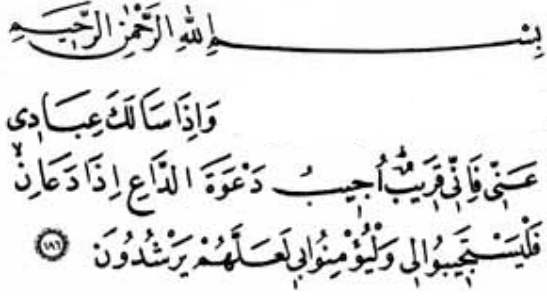 بِسْمِ اللهِ الرَّحْمٰنِ الرَّحِيمِ
وَاِذَا سَاَلَكَ عِبَادِى
عَنِّى فَاِنِّى قَرِيبٌ اُجِيبُ دَعْوَةَ الدَّاعِ اِذَا دَعَانِ
فَلْيَسْتَجِيبُوا لِى وَلْيُؤْمِنُوا بِى لَعَلَّهُمْ يَرْشُدُونَ ﴿١٨٦﴾